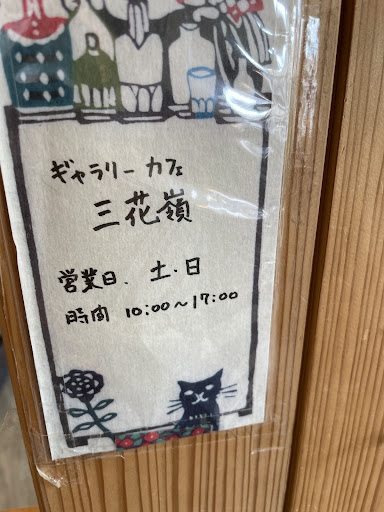 ギャラリー カフェ
三花嶺
営業日. 土.日
時間 10:00~17:00